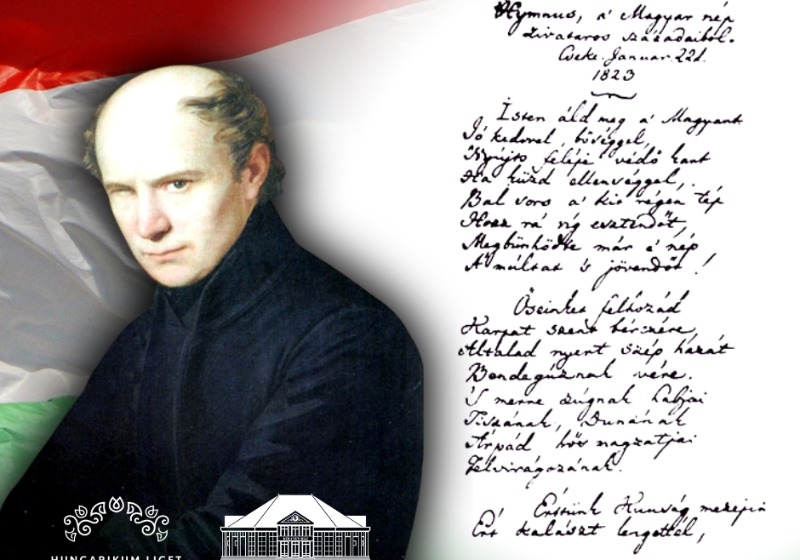 Hymnus, a' Magyar nép
zivataros századaiból.
Cseke. Januar. 22d.
1823
Isten áld meg a' Magyart
Jó kedvvel, bőséggel,
Nyújts feléje védő kart
Ha küzd ellenséggel,
Bal sors a' kit régen tép
Hozz rá víg esztendőt,
Megbűnhödte már e' nép
A' múltat 's jövendőt!
Őseinket felhozád
Kárpát szent bérczére,
Általad nyert szép hazát
Bendegúznak vére.
'S merre zúgnak habjai
Tiszának, Dunának
Árpád hős magzatjai
Felvirágozának.
Értünk Kunság mezején
Ért kalászt lengettél,
HUNGARIKUM LIGET